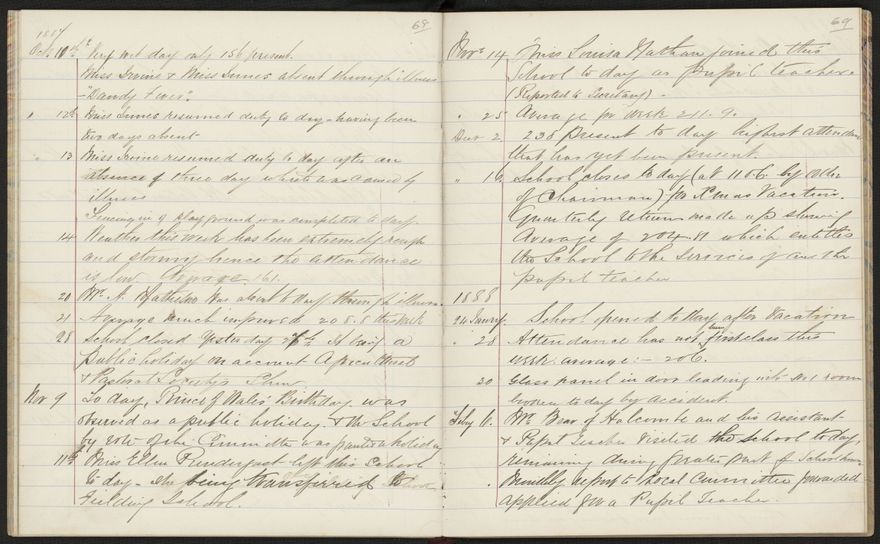 68
1887
Oct. 10th Very wet day only 156 present.
Miss Irvine & Miss Innes absent through illness
"Dandy Fever".
" 12th Miss Innes resumed duty to day - having been
two days absent
" 13 Miss Irvine resumed duty to day after an
absence of three day which was caused by
illness
Fencing in of playground was completed to day.
14 Weather this week has been extremely rough
and stormy hence the attendance
is low Average 161.
20 Mr. N. Matheson was absent to day through illness
21 Average much improved 208.8 this week
28 School closed yesterday 27th it being a
public holiday on account Agricultural
& Pastoral Society's Show
Nov 9 To day, Prince of Wales' Birthday was
observed as a public holiday & the School
by vote of the Committee was granted a holiday
11th Miss Ellen Prendergast left this School
to day - she being transferred to
Feilding School.
69
Novr 14 Miss Louisa Nathan joined this
School to day as pupil teacher.
(Reported to Secretary) -
" 25 Average for week 211.9.
Decr 2 238 present to day highest attendance
that has yet been present.
" 16 School closes to day (at 11 by order
of Chairman) for Xmas Vacation.
Quarterly return made up showing
Average of 204. which entitles
the School to the services of another
pupil teacher
1888
24 Janry. School opened to day after Vacation
" 28 Attendance has not been first class this
week: average:- 206.
30 Glass panel in door leading into No 1 room
broken to day by accident.
Feby 10. Mr. of Halcombe and his assistant
& Pupil teacher visited the School to day
remaining during greater part of School
" Monthly report to Local Committee forwarded
applied for a Pupil Teacher.